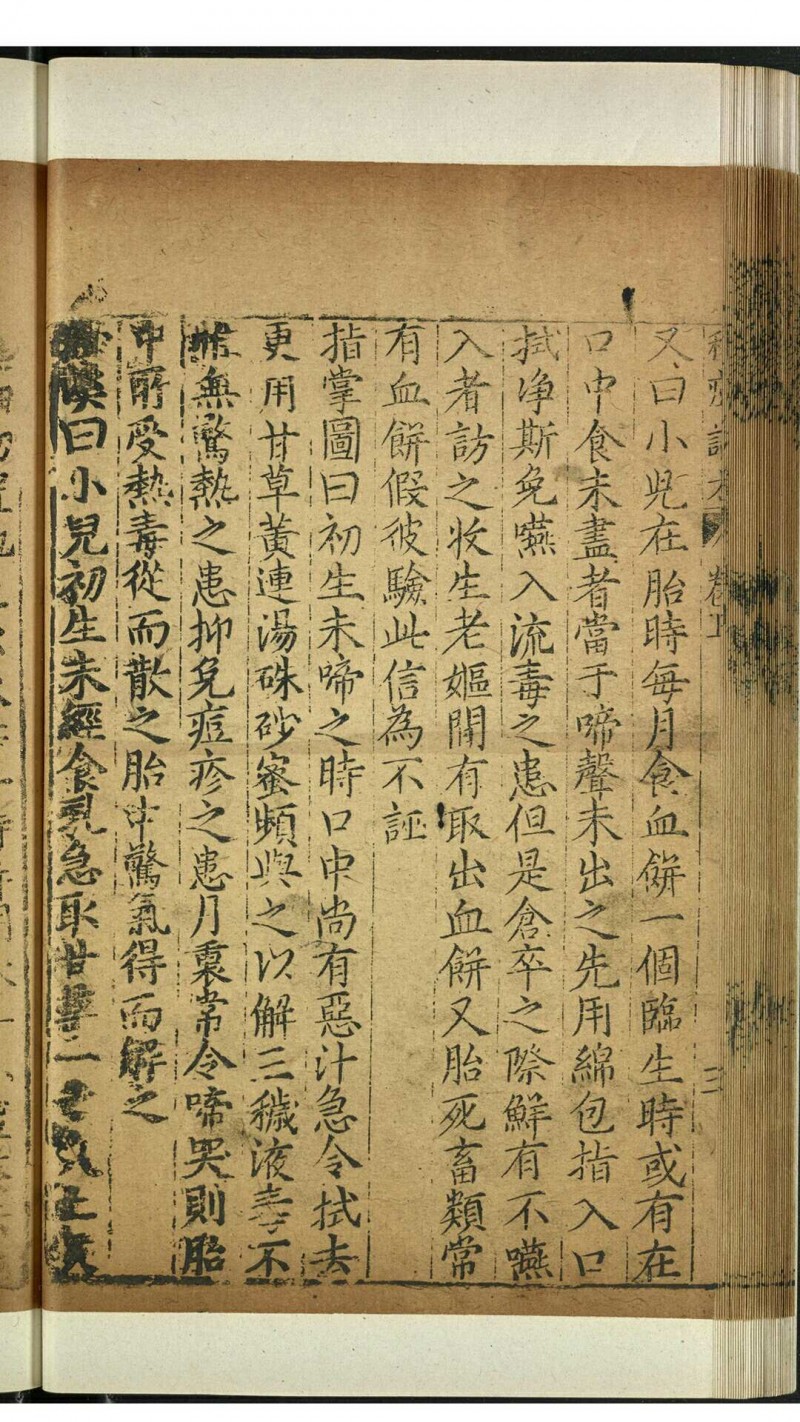 又曰小兒在胎時每月食血餅一個臨生時或有在
口中食未盡者當于啼聲未出之先用綿包指入口
拭淨斯免嚥入流毒之患但是倉卒之際鮮有不嚥
入者訪之收生老嫗閒有取出血餅又胎死畜類常
有血餅假彼驗此信為不誣
指掌圖曰初生未啼之時口中尚有惡汁急令拭去
更用甘草黃連湯硃砂蜜頻與之以解三穢液毒不
惟無驚熱之患抑免痘疹之患月裏常令啼哭則胎
中所受熱毒從而散之胎中驚氣得而解之
曰小兒初生未經食乳急取甘草二寸